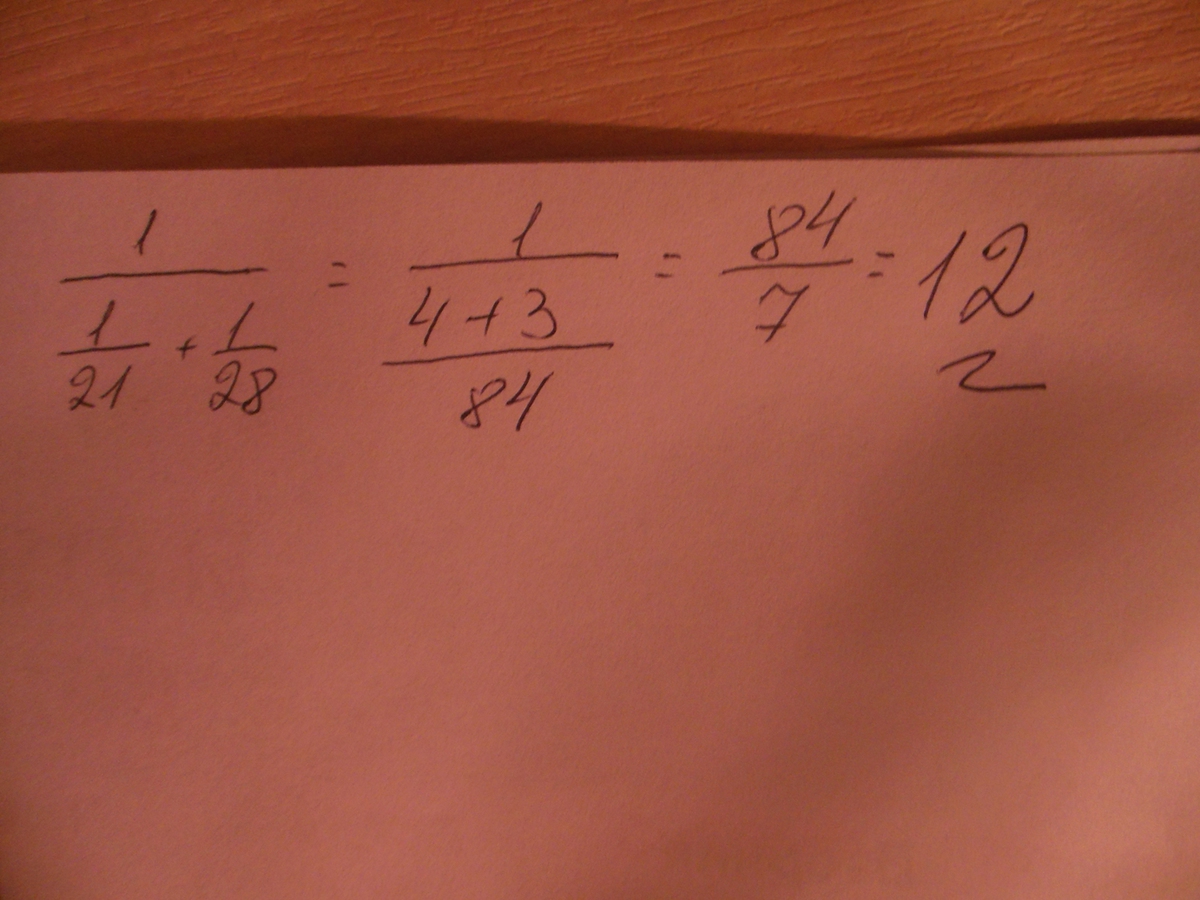 1/(1/21 + 1/28) = 1/((4+3)/84) = 84/7 = 12